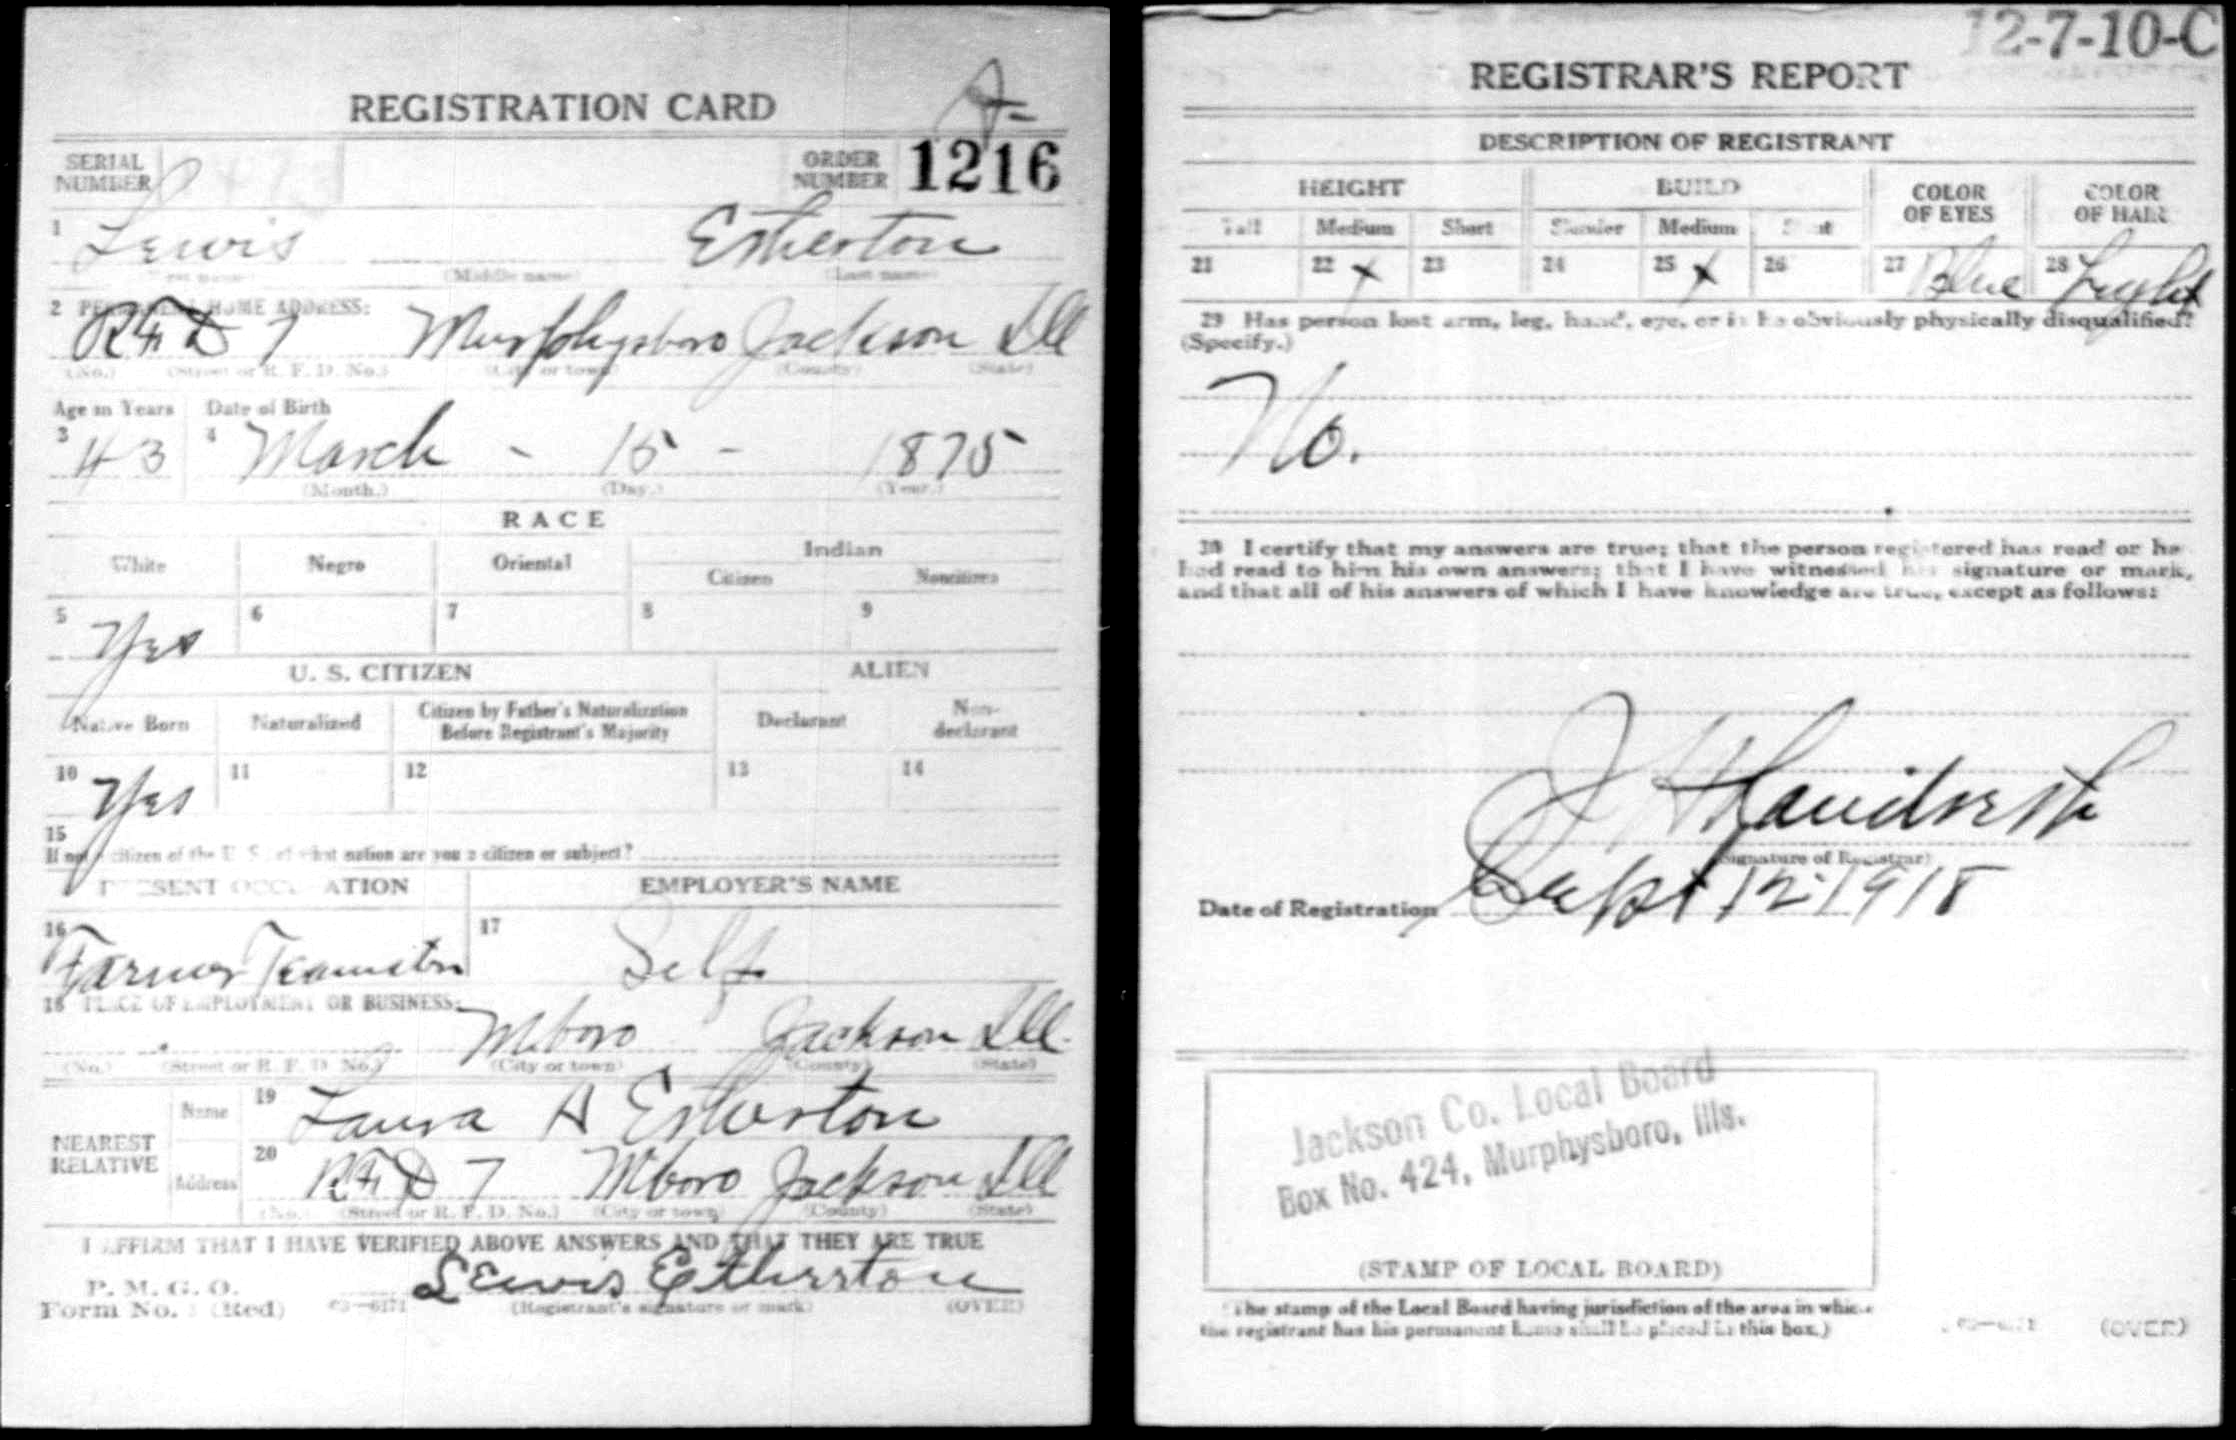 REGISTRATION CARD
SERIAL NUMBER
ORDER NUMBER 1216
1 Lewis Etherton
(Middle name) (Last name)
2 PERMANENT HOME ADDRESS:
RFD 7 Murphysboro Jackson Ill
(No.) (Street or R. F. D. No.) (City or town) (County) (State)
Age in Years Date of Birth
3 43 4 March - 15 - 1875
(Month.) (Day.) (Year.)
RACE
White Negro Oriental Indian
Citizen Noncitizen
5 Yes 6 7 8 9
U. S. CITIZEN ALIEN
Native Born Naturalized Citizen by Father's Naturalization Before Registrant's Majority Declarant Non-declarant
10 Yes 11 12 13 14
15
If not a citizen of the U. S., of what nation are you a citizen or subject?
PRESENT OCCUPATION EMPLOYER'S NAME
16 Farmer 17 Self
18 PLACE OF EMPLOYMENT OR BUSINESS:
Mboro Jackson Ill.
(No.) (Street or R. F. D. No.) (City or town) (County) (State)
NEAREST RELATIVE
Name 19 Laura A Etherton
Address 20 RFD 7 Mboro Jackson Ill
(No.) (Street or R. F. D. No.) (City or town) (County) (State)
I AFFIRM THAT I HAVE VERIFIED ABOVE ANSWERS AND THAT THEY ARE TRUE
P. M. G. O.
Form No. 1 (Red) 03—6171 Lewis Etherton
(Registrant's signature or mark) (OVER)
12-7-10-C
REGISTRAR'S REPORT
DESCRIPTION OF REGISTRANT
HEIGHT BUILD COLOR OF EYES COLOR OF HAIR
Tall Medium Short Slender Medium Stout
21 22 x 23 24 25 x 26 27 Blue 28
29 Has person lost arm, leg, hand, eye, or is he obviously physically disqualified?
(Specify.)
No.
30 I certify that my answers are true; that the person registered has read or has
had read to him his own answers; that I have witnessed his signature or mark,
and that all of his answers of which I have knowledge are true, except as follows:
(Signature of Registrar)
Date of Registration Sept 12 1918
Jackson Co. Local Board
Box No. 424, Murphysboro, Ills.
(STAMP OF LOCAL BOARD)
(The stamp of the Local Board having jurisdiction of the area in which
the registrant has his permanent home shall be placed in this box.)
(OVER)